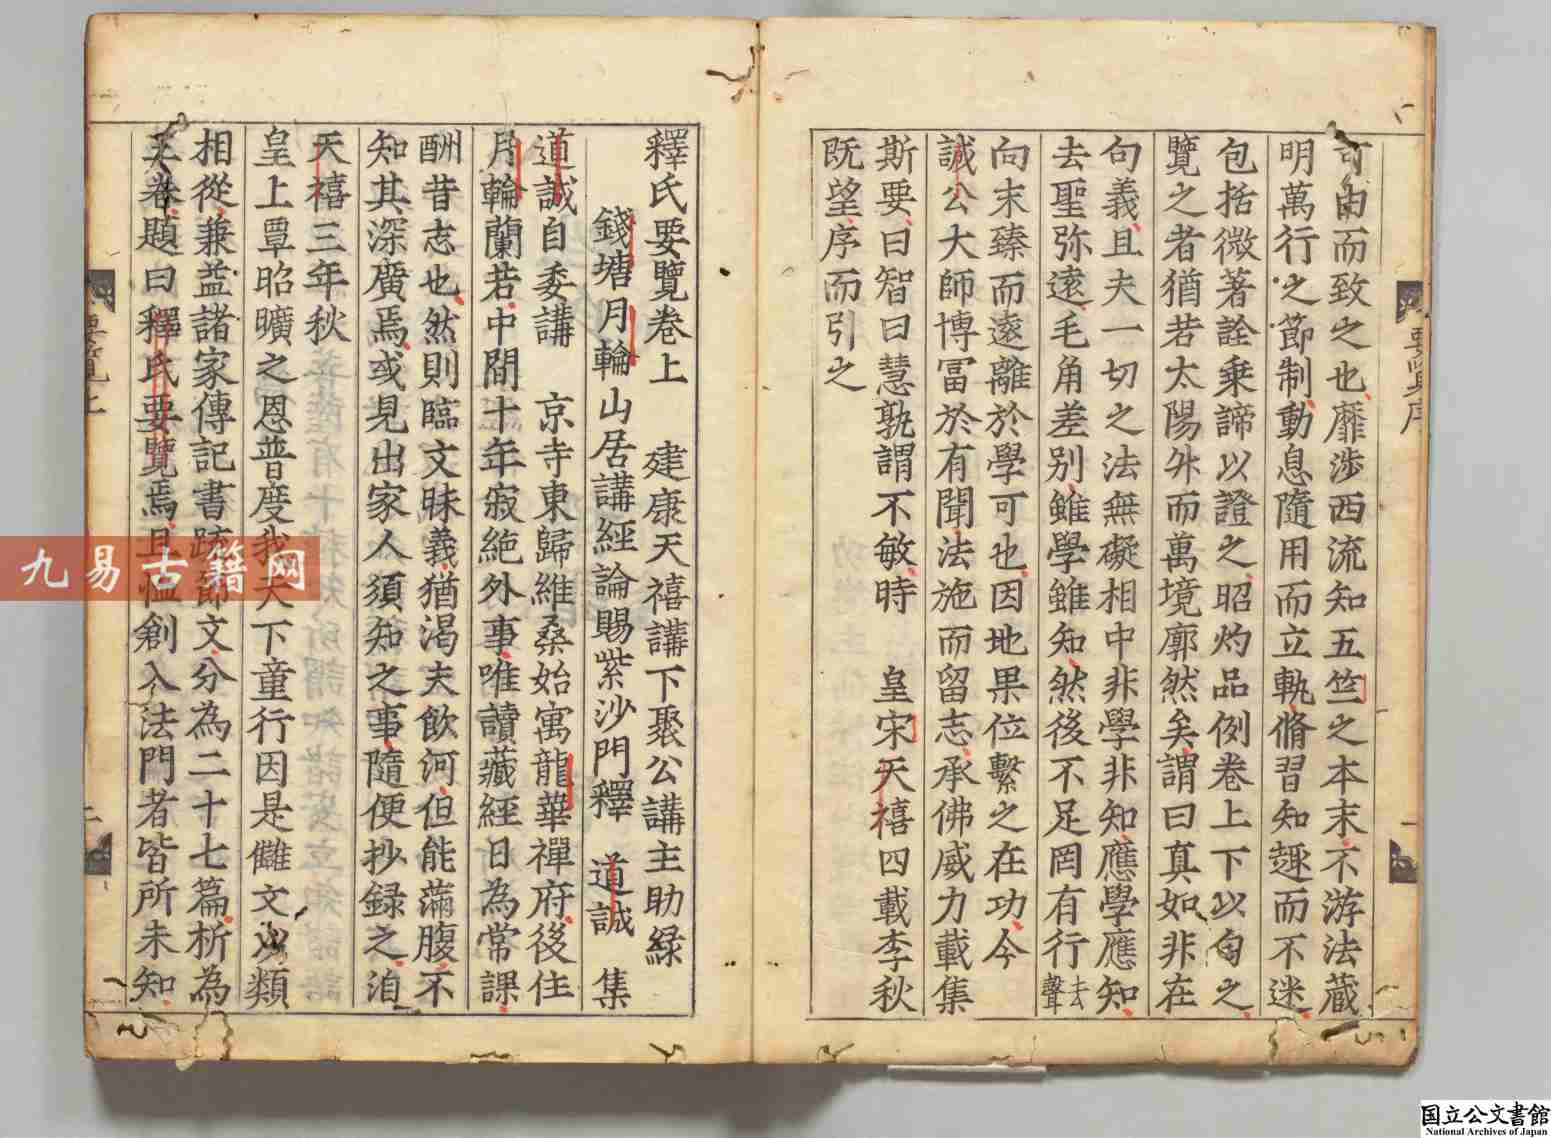 可由而致之也靡涉西流知五竺之本末不游法藏
明萬行之節制動息隨用而立軌脩習知趣而不迷
包括微著詮乗諦以證之昭灼品例卷上下以旬之
覽之者猶若太陽外而萬境廓然矣謂曰真如非在
句義且夫一切之法無礙相中非學非知應學應知
去聖弥遠毛角差別雖學雖知然後不足罔有行去聲
向末臻而遠離於學可也因地果位繫之在功今
誠公大師博冨於有聞法施而留志承佛威力載集
斯要曰智曰慧孰謂不敏時 皇宋天禧四載李秋
既望序而引之
釋氏要覽卷上 建康天禧講下聚公講主助緑
錢塘月輪山居講經論賜紫沙門釋 道誠 集
道誠自委講 京寺東歸維桑始寓龍華禪府後住
月輪蘭若中間十年寂絶外事唯讀藏經日為常課
酬昔志也然則臨文昧義猶渴夫飲河但能滿腹不
知其深廣焉或見出家人須知之事隨便抄録之洎
天禧三年秋
皇上覃昭曠之恩普度我天下童行因是讎文以類
相從兼益諸家傳記書疏節文分為二十七篇析為
三卷題曰釋氏要覽焉且恤創入法門者皆所未知
要覽序
一
要覽上
九易古籍网
国立公文書館
National Archives of Japan